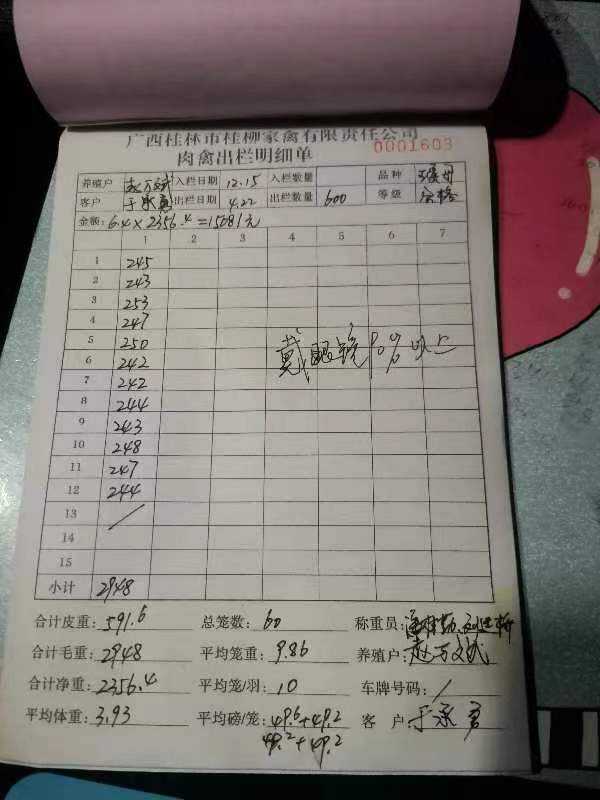 广西桂林市桂柳家禽有限责任公司
肉禽出栏明细单 0001603
养殖户 赵万斌 入栏日期 12.15 入栏数量 品种
客户 于承勇 出栏日期 4.22 出栏数量 600 等级 合格
金额: 6.4×2356.4=15081元
1 2 3 4 5 6 7
1 245
2 243
3 253
4 247
5 250
戴眼镜90%以上
6 242
7 242
8 244
9 243
10 248
11 247
12 244
13 /
14
15
小计 2948
合计皮重: 591.6 总笼数: 60 称重员:
合计毛重: 2948 平均笼重: 9.86 养殖户: 赵万斌
合计净重: 2356.4 平均笼/羽: 10 车牌号码: /
平均体重: 3.93 平均磅/笼: 49.6+49.2 客户: 于承勇
49.2+49.2